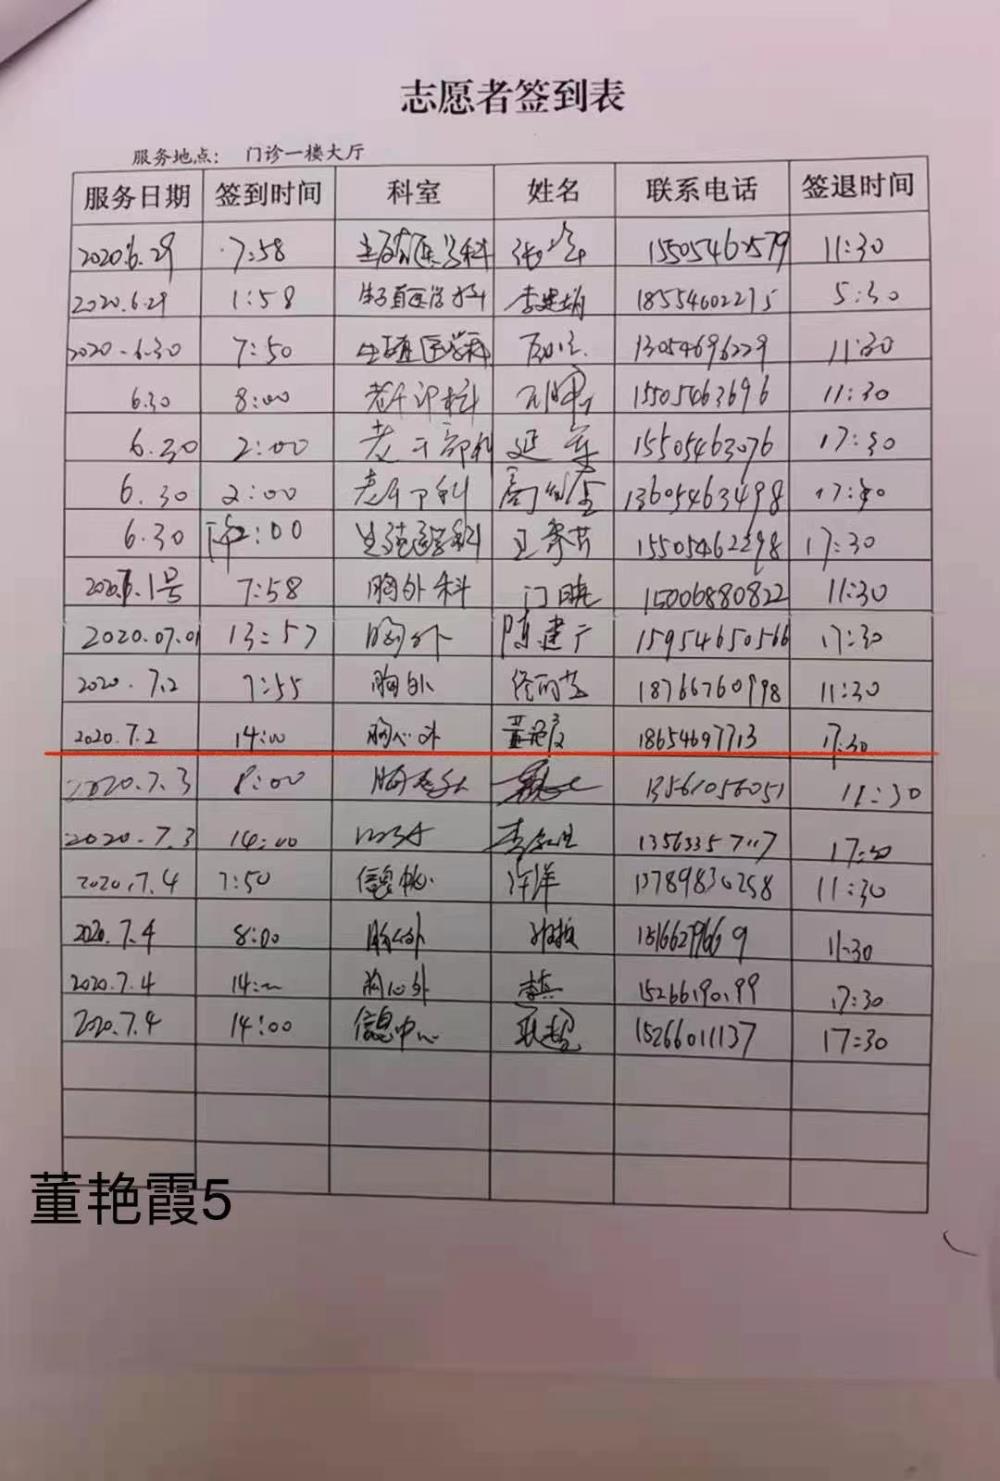 志愿者签到表
服务地点： 门诊一楼大厅
服务日期 签到时间 科室 姓名 联系电话 签退时间
2020.6.29 7:58 生殖医学科 15505462579 11:30
2020.6.29 1:58 生殖医学科 李建娟 18554602275 5:30
2020.6.30 7:50 生殖医学科 13054696229 11:30
6.30 8:00 老干部科 15505463696 11:30
6.30 2:00 老干部科 延军 15505463076 17:30
6.30 2:00 老干部科 13605463498 17:30
6.30 下午2:00 生殖医学科 王秀芳 15505462298 17:30
2020.7.1号 7:58 胸外科 门晓 15006880822 11:30
2020.07.01 13:57 胸外 陈建广 15954650566 17:30
2020.7.2 7:55 胸外 18766760998 11:30
2020.7.2 14:00 胸心外 董艳霞 18654697713 17:30
2020.7.3 8:00 13561056051 11:30
2020.7.3 14:00 17:30
2020.7.4 7:50 信息中心 许洋 13789830258 11:30
2020.7.4 8:00 胸心外 15166279669 11:30
2020.7.4 14:00 胸心外 李兵 15266190199 17:30
2020.7.4 14:00 信息中心 耿超 15266011137 17:30
董艳霞5